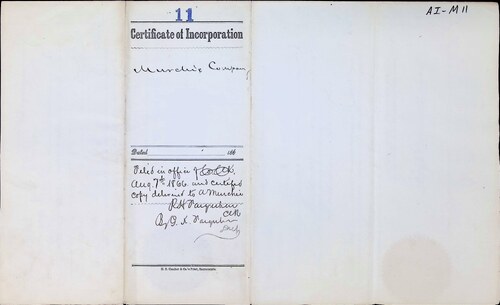 11
AI-M11
Certificate of Incorporation
Murchie Company
Dated 186
Filed in office of
Aug. 7th 1866 and certified
copy delivered to A Murchie
R H Farquhar
Clk
By G. K. Farquhar
Depty